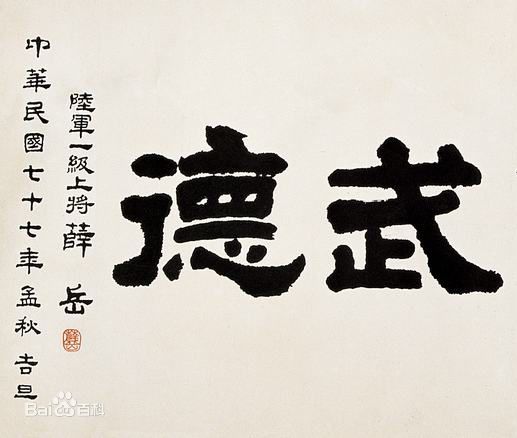 武德
陸軍一級上將薛岳
中華民國七十七年孟秋吉旦
Bai百科